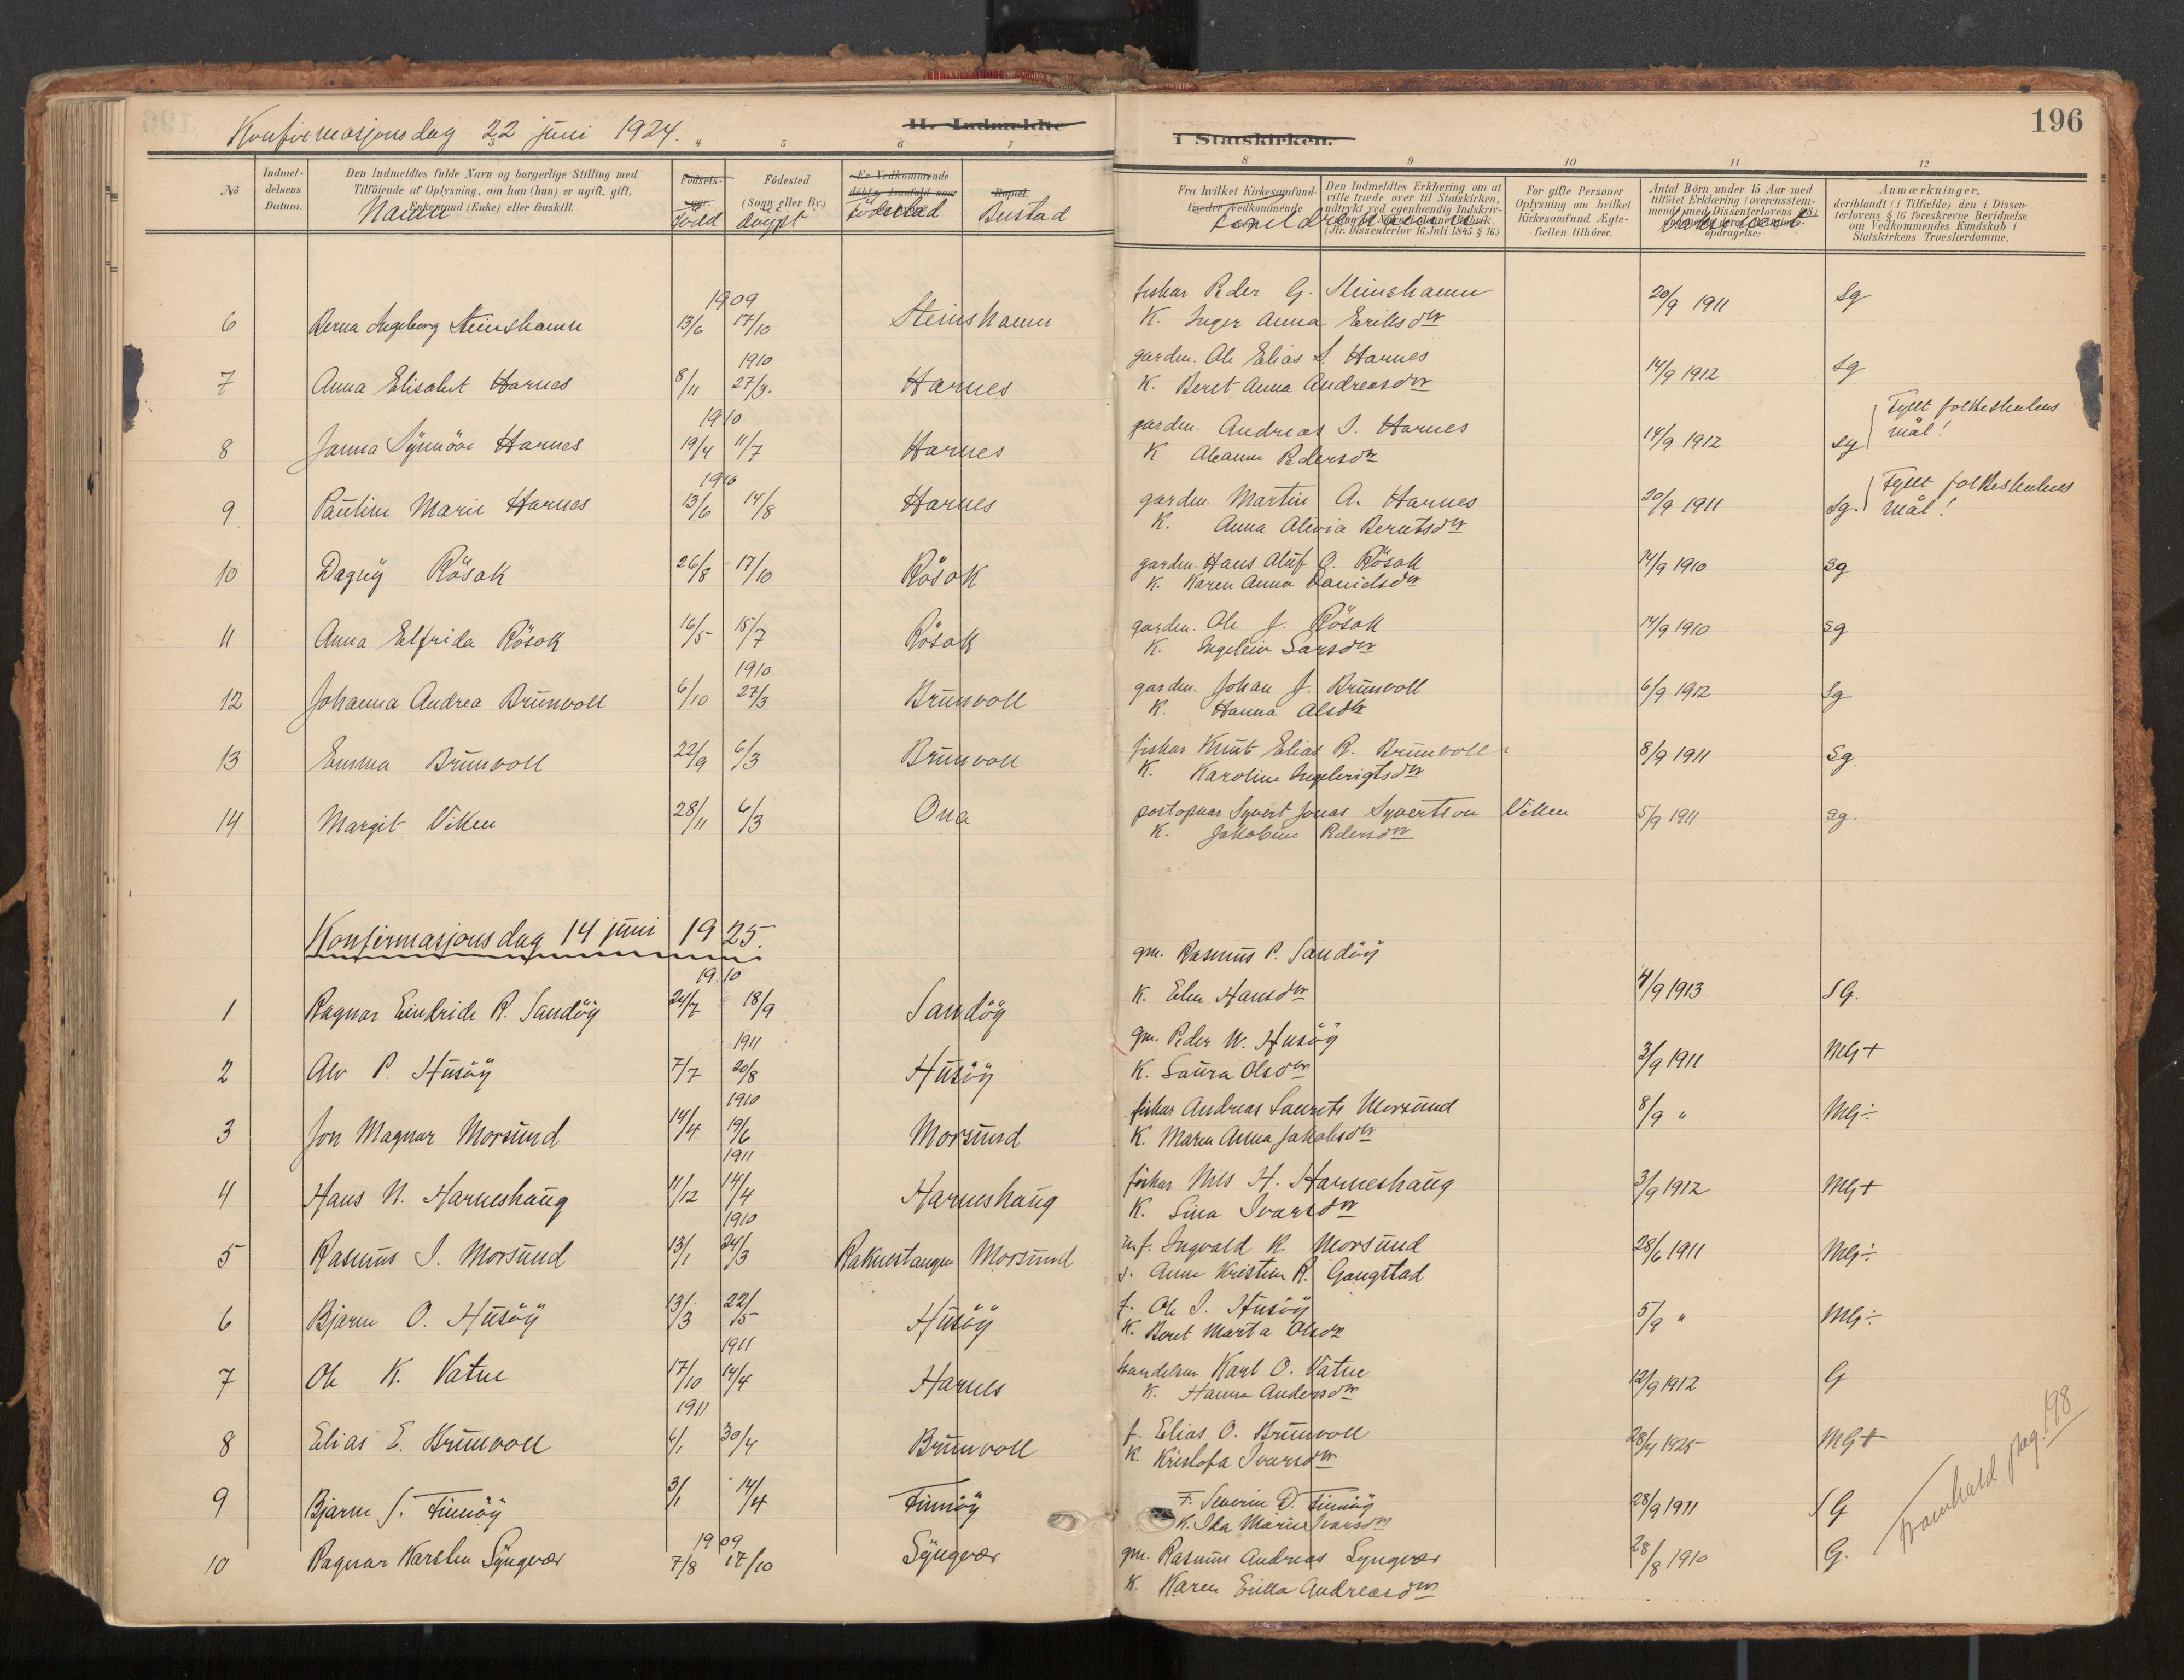 Konfirmasjonsdag 22 juni 1924.
H. Indmeldte
i Statskirken.
196
4 5 6 7 8 9 10 11 12
No
Indmel-
delsens
Datum.
Den Indmeldtes fulde Navn og borgerlige Stilling med
Tilföiende af Oplysning, om han (hun) er ugift, gift,
Enkemand (Enke) eller fraskilt.
Namn
Födsels-
aar.
född
Födested
(Sogn eller By.)
døypt
Er Vedkommende
födestad
Bopæl.
Bustad
Fra hvilket Kirkesamfund
træder Vedkommende
Foreldre
Den Indmeldtes Erklæring om at
ville træde over til Statskirken,
udtrykt ved egenhændig Indskriv-
(Jfr. Dissenterlov 16 Juli 1845 § 16.)
For gifte Personer
Oplysning om hvilket
Kirkesamfund Ægte-
fællen tilhörer.
Antal Börn under 15 Aar med
tilföiet Erklæring (overensstem-
mende med Dissenterlovens
opdragelse.
Anmærkninger,
deriblandt (i Tilfælde) den i Dissen-
terlovens § 16 foreskrevne Bevidnelse
om Vedkommendes Kundskab i
Statskirkens Troeslærdomme.
6 Berna Ingeborg Steinshamn 13/6 1909 17/10 Steinshamn fiskar Peder G. Steinshamn 20/9 1911 Sg
K. Inger Anna Eriksdtr
7 Anna Elisabet Harnes 8/11 1910 27/3. Harnes garden. Ole Elias S. Harnes 14/9 1912 Sg
K. Beret Anna Andreasdtr
8 Janna Synnöve Harnes 1910 19/4 11/7 Harnes garden. Andreas I. Harnes 14/9 1912 Sg Fyllt folkeskulens mål!
K Oleanna Pedersdtr
9 Pauline Marie Harnes 1910 13/6 14/8 Harnes garden. Martin A. Harnes 20/9 1911 Sg. Fyllt folkeskulens mål!
K. Anna Olivia Berntsdtr
10 Dagny Rösok 26/8 17/10 Rösok garden. Hans Aluf O. Rösok 14/9 1910 Sg
K. Karen Anna Danielsdtr
11 Anna Elfrida Rösok 16/5 15/7 Rösok garden. Ole J. Rösok 14/9 1910 Sg
K. Ingeleiv Larsdtr
12 Johanna Andrea Brunvoll 6/10 1910 27/3 Brunvoll garden. Johan J. Brunvoll 6/9 1912 Sg
K. Hanna Olsdtr
13 Emma Brunvoll 22/9 6/3 Brunvoll fiskar Knut Elias R. Brunvoll 8/9 1911 Sg
K. Karoline Ingebrigtsdtr
14 Margit Viken 28/11 6/3 Ona postopnar Syvert Jonas Syvertson Viken 5/9 1911 Sg.
K. Jakobine Pedersdtr
Konfirmasjonsdag 14 juni 1925.
gm. Rasmus P. Sandöy
1 Ragnar Eindride R. Sandöy 1910 24/7 18/9 Sandöy K. Elen Hansdtr 4/9 1913 SG.
gm. Peder W. Husöy
2 Alv P. Husöy 7/7 1911 20/8 Husöy K. Laura Olsdtr 3/9 1911 MG+
fiskar Andreas Laurits Morsund
3 Jon Magnar Morsund 14/4 1910 19/6 Morsund K. Maren Anna Jakobsdtr 8/9 " MG÷
fiskar Nils H. Harneshaug
4 Hans N. Harneshaug 11/12 1911 14/4 Harneshaug K. Lina Ivarsdtr 3/9 1912 MG+
5 Rasmus I. Morsund 13/1 1910 24/3 Raknestangen Morsund u.f. Ingvald K. Morsund 28/6 1911 MG÷
s. Anne Kristine R. Gangstad
6 Bjarne O. Husöy 13/3 22/5 Husöy f. Ole I. Husöy 5/9 " MG÷
K. Beret Marta Olsdtr
7 Ole K. Vatne 17/10 1911 14/4 Harnes handelsm Karl O. Vatne 12/9 1912 G
K. Hanna Andersdtr
8 Elias E. Brunvoll 1911 4/1 30/4 Brunvoll f. Elias O. Brunvoll 28/4 1925 MG+
K. Kristofa Ivarsdtr
9 Bjarne S. Finnöy 3/1 14/4 Finnöy F. Severin D. Finnöy 28/9 1911 SG
K. Ida Marie Ivarsdtr
10 Ragnar Karsten Syngvær 1909 7/8 17/10 Syngvær gm. Rasmus Andreas Syngvær 28/8 1910 G.
K. Karen Erikka Andreasdtr
Framhald pag. 198